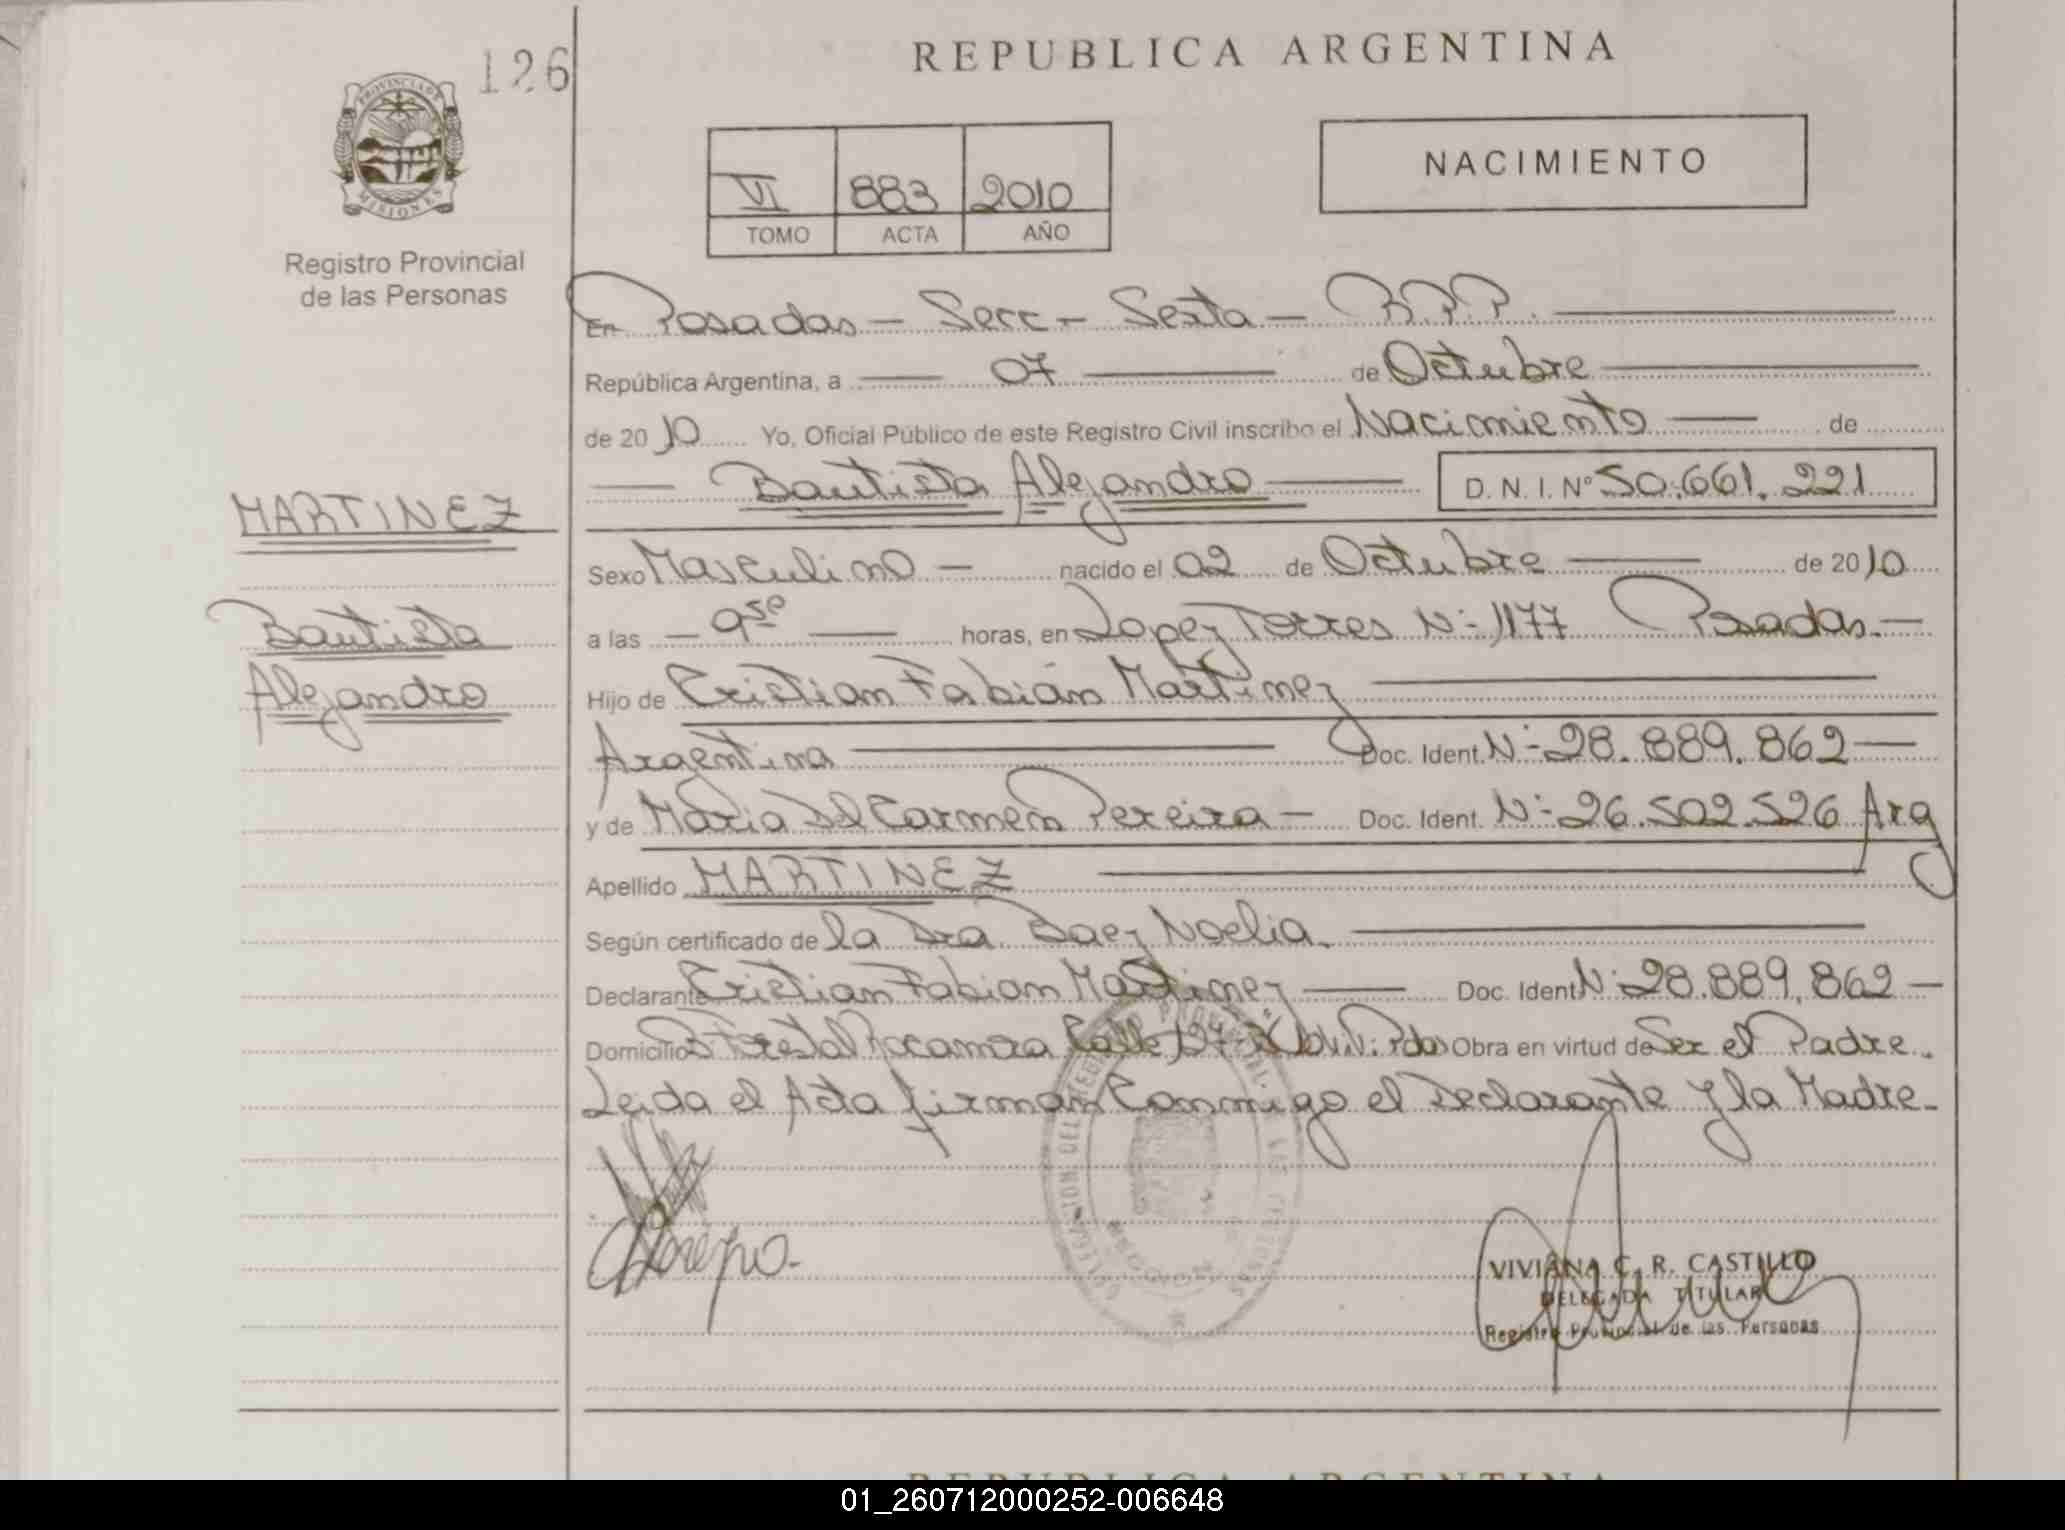 126
REPUBLICA ARGENTINA
PROVINCIA DE
MISIONES
Registro Provincial
de las Personas
NACIMIENTO
VI 883 2010
TOMO ACTA AÑO
En Posadas - Secc - Sexta - R.P.P.
República Argentina, a 07 de Octubre
de 2010 Yo, Oficial Público de este Registro Civil inscribo el Nacimiento de
Bautista Alejandro D. N. I. Nº 50.661.221
MARTINEZ
Bautista
Alejandro
Sexo Masculino - nacido el 02 de Octubre de 2010
a las - 9 50 horas, en Lopez Torres Nº 1177 Posadas.-
Hijo de Cristian Fabián Martinez
Argentina Doc. Ident. Nº 28.889.862
y de Maria Del Carmen Pereira - Doc. Ident. Nº 26.502.526 Arg
Apellido MARTINEZ
Según certificado de la Dra Baez Noelia.
Declarante Cristian Fabian Martinez Doc. Ident Nº 28.889.862 -
Domicilio Rocamora Calle Obra en virtud de Ser el Padre.
Leida el Acta firman Conmigo el Declarante y la Madre-
VIVIANA C. R. CASTILLO
DELEGADA TITULAR
Registro Provincial de las Personas
REPUBLICA ARGENTINA
01_260712000252-006648